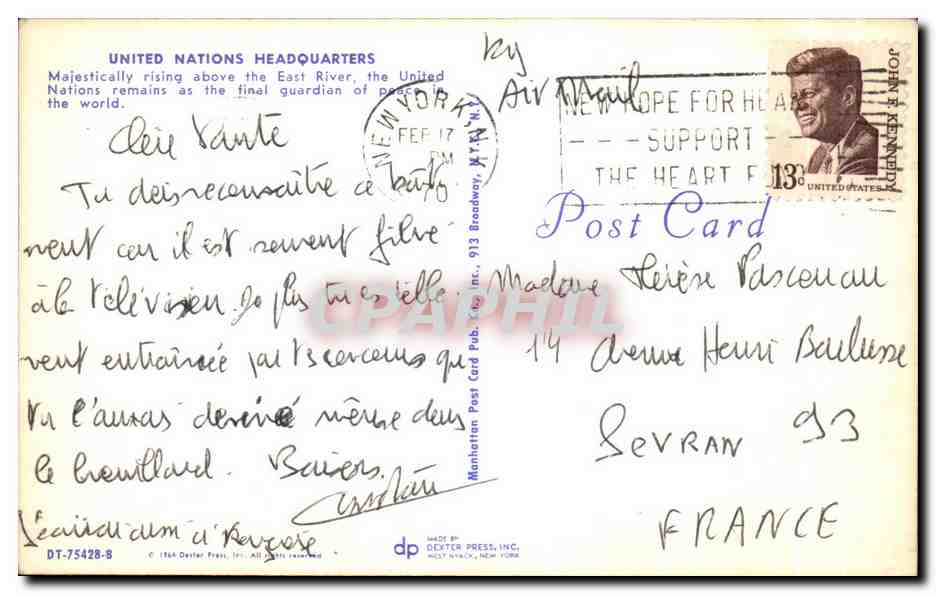 UNITED NATIONS HEADQUARTERS
Majestically rising above the East River, the United
Nations remains as the final guardian of peace in
the world.
Tu dois reconnaître ce bâti-
ment car il est souvent filmé
à la télévision. De plus tu es telle-
ment entraînée par tes cerveaux que
tu l'auras deviné même dans
le brouillard. Baisers.
DT-75428-B
© 1964 Dexter Press, Inc. All rights reserved
dp
MADE BY
DEXTER PRESS, INC.
WEST NYACK, NEW YORK
Manhattan Post Card Pub. Co., Inc., 913 Broadway, N.Y.C., N.Y.
by
Air Mail
NEW YORK, N.Y.
FEB 17
PM
NEW HOPE FOR
SUPPORT
THE HEART
JOHN F. KENNEDY
13c
UNITED STATES
Post Card
Madame Thérèse
14 avenue Henri Barbusse
SEVRAN 93
FRANCE
CPAPHIL